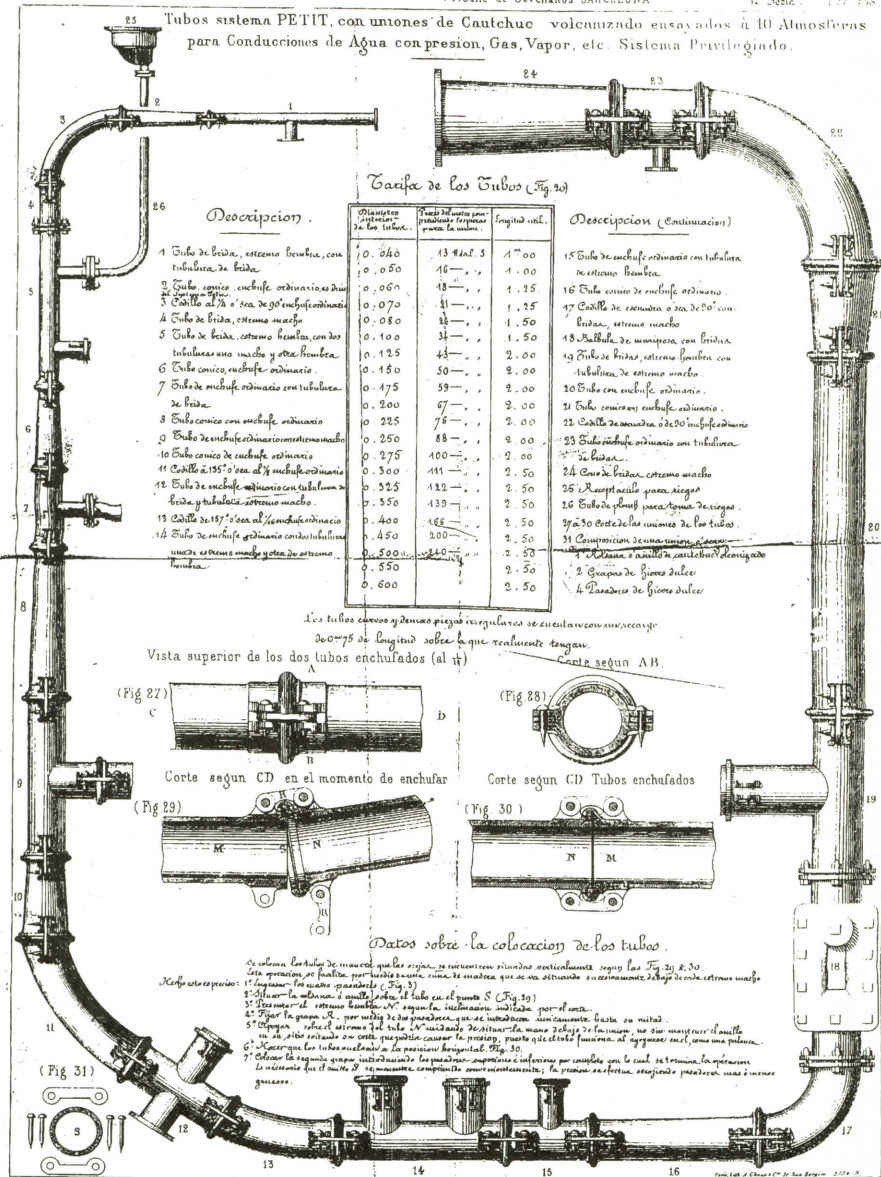 BARCELONA
Tubos sistema PETIT, con uniones de Cautchuc volcanizado ensayados à 10 Atmosferas
para Conducciones de Agua con presion, Gas, Vapor, etc. Sistema Privilegiado.
Tarifa de los Tubos (Fig. 20)
Descripcion.
1 Tubo de brida, estremo hembra, con
tubulura de brida
2 Tubo conico, enchufe ordinario,
3 Codillo al ¼ o sea de 90° enchufe ordinario
4 Tubo de brida, estremo macho
5 Tubo de brida, estremo hembra, con dos
tubuluras una macho y otra hembra
6 Tubo conico, enchufe ordinario.
7 Tubo de enchufe ordinario con tubulura
de brida
8 Tubo conico con enchufe ordinario
9 Tubo de enchufe ordinario con estremo macho
10 Tubo conico de enchufe ordinario
11 Codillo à 135° o sea al ⅛ enchufe ordinario
12 Tubo de enchufe ordinario con tubulura de
brida y tubulura estremo macho.
13 Codillo de 157° o sea al 1/16 enchufe ordinario
14 Tubo de enchufe ordinario con dos tubuluras
una de estremo macho y otra de estremo
hembra
Diametro interior de los tubos. Precio del metro comprendiendo las piezas para la union. Longitud util.
0.040 13 Real. S 1m00
0.050 16 1.00
0.060 18 1.25
0.070 21 1.25
0.080 26 1.50
0.100 34 1.50
0.125 43 2.00
0.150 50 2.00
0.175 59 2.00
0.200 67 2.00
0.225 76 2.00
0.250 88 2.00
0.275 100 2.00
0.300 111 2.50
0.325 122 2.50
0.350 139 2.50
0.400 166 2.50
0.450 200 2.50
0.500 240 2.50
0.550 2.50
0.600 2.50
Descripcion (Continuacion)
15 Tubo de enchufe ordinario con tubulura
de estremo hembra
16 Tubo conico de enchufe ordinario.
17 Codillo de escuadra o sea de 90° con
bridas, estremo macho
18 Balbula de mariposa con bridas
19 Tubo de bridas, estremo hembra con
tubulura de estremo macho.
20 Tubo con enchufe ordinario.
21 Tubo conico con enchufe ordinario.
22 Codillo de escuadra ó de 90° enchufe ordinario
23 Tubo enchufe ordinario con tubulura
de bridas.
24 Cono de bridas estremo macho
25 Receptaculo para riegos
26 Tubo de plomo para toma de riegos.
27 a 30 Corte de las uniones de los tubos.
31 Composicion de una union o sean
1 Roldana o anillo de cautchuc volcanizado
2 Grapas de hierro dulce
4 Pasadores de hierro dulce
Los tubos curvos y demas piezas irregulares se cuentan con un recargo
de 0m75 de longitud sobre la que realmente tengan.
Vista superior de los dos tubos enchufados
Corte segun AB.
(Fig 27)
A
C
D
B
(Fig. 28)
Corte segun CD en el momento de enchufar
Corte segun CD Tubos enchufados
(Fig 29)
R
M
S
N
R
(Fig. 30)
N
M
Datos sobre la colocacion de los tubos.
Se colocan los tubos de manera que las orejas se encuentren situadas verticalmente segun las Fig. 29 & 30.
Esta operacion se facilita por medio de una cuña de madera que se va situando sucesivamente debajo de cada estremo macho
Hecho esto es preciso: 1° Engrasar los cuatro pasadores (Fig. 31)
2° Situar la roldana o anillo sobre el tubo en el punto S (Fig. 29)
3° Presentar el estremo hembra N segun la inclinacion indicada por el corte.
4° Fijar la grapa R, por medio de dos pasadores que se introducen unicamente hasta su mitad.
5° Apoyar sobre el estremo del tubo N cuidando de situar la mano debajo de la union,
puesto que el tubo funciona al apoyarse en el, como una palanca.
6° Hacer que los tubos vuelvan a la posicion horizontal. Fig. 30.
7° Colocar la segunda grapa introduciendo los pasadores superiores é inferiores por completo con lo cual se termina la operacion
Es necesario que el anillo S se encuentre comprimido convenientemente; la presion se efectua escojiendo pasadores mas ó menos
gruesos.
(Fig 31)
S
1
2
3
4
5
6
7
8
9
10
11
12
13
14
15
16
17
18
19
20
21
22
23
24
25
26